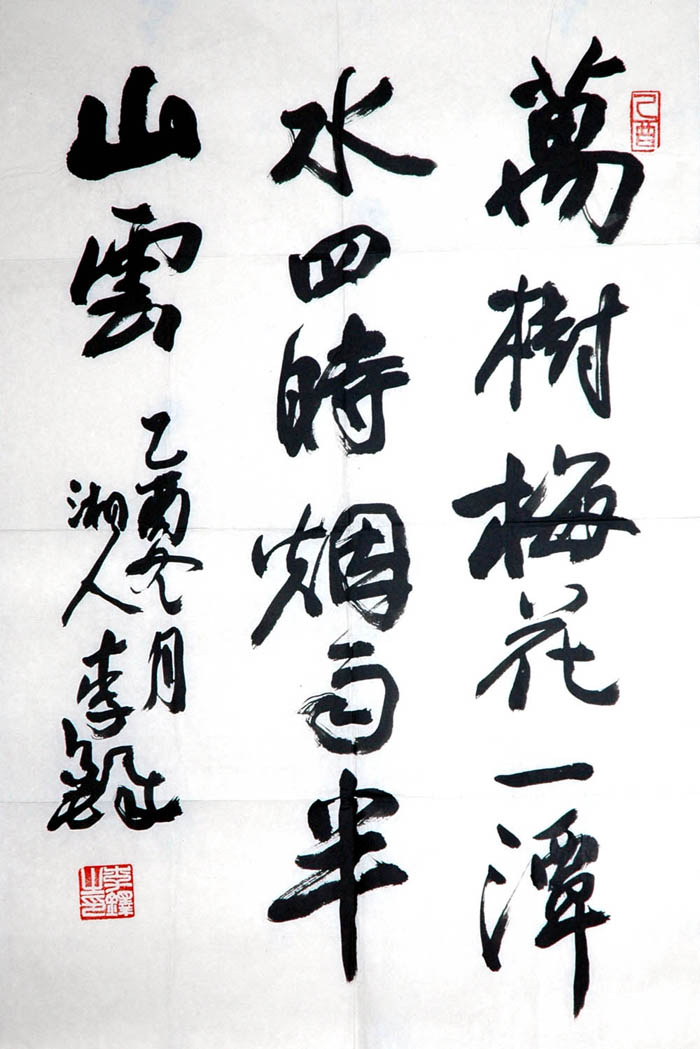 乙酉
萬樹梅花一潭
水四時烟雨半
山雲
乙酉冬月
湘人李鐸
李鐸之印